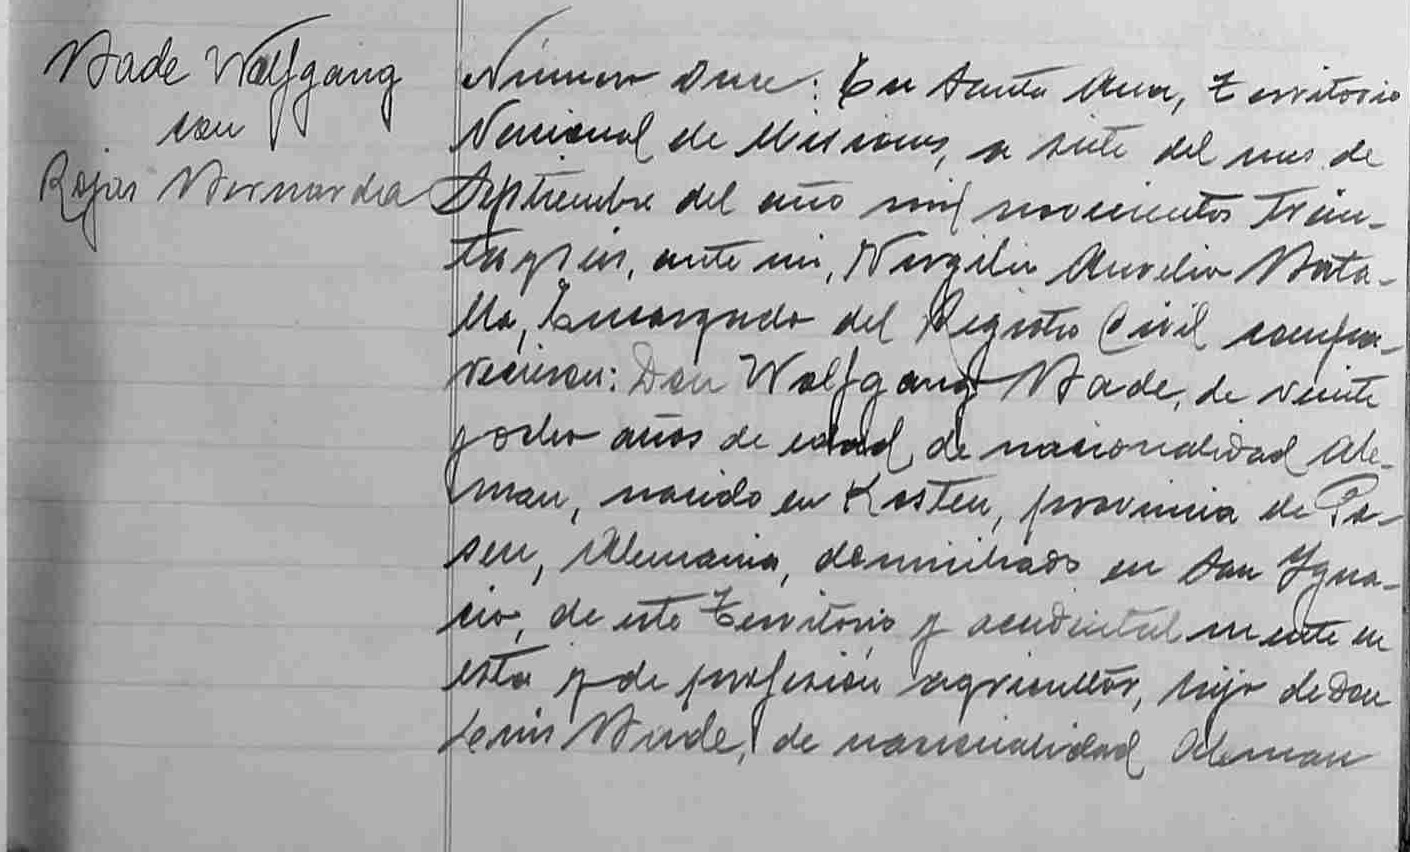 Bade Wolfgang
con
Rojas Bernarda
Número Once: En Santa Ana, Territorio
Nacional de Misiones, a siete del mes de
Septiembre del año mil novecientos trein-
tayseis, ante mi, Virgilio Aurelio Bata-
lla, Encargado del Registro Civil compa-
recieron: Don Wolfgang Bade, de veinte
y ocho años de edad, de nacionalidad Ale-
man, nacido en Kosten, provincia de Po-
sen, Alemania, domiciliado en San Igna-
cio, de este Territorio y accidentalmente en
esta y de profesión agricultor, hijo de Don
Luis Bade, de nacionalidad Aleman